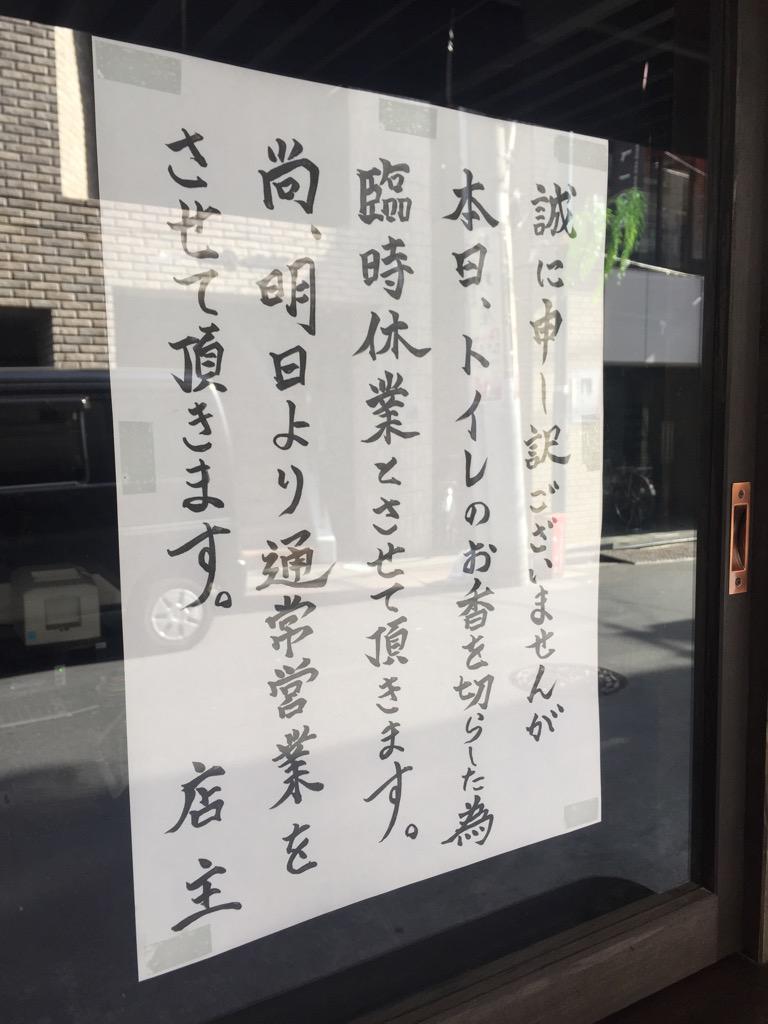 誠に申し訳ございませんが
本日、トイレのお香を切らした為
臨時休業とさせて頂きます。
尚、明日より通常営業を
させて頂きます。
店主